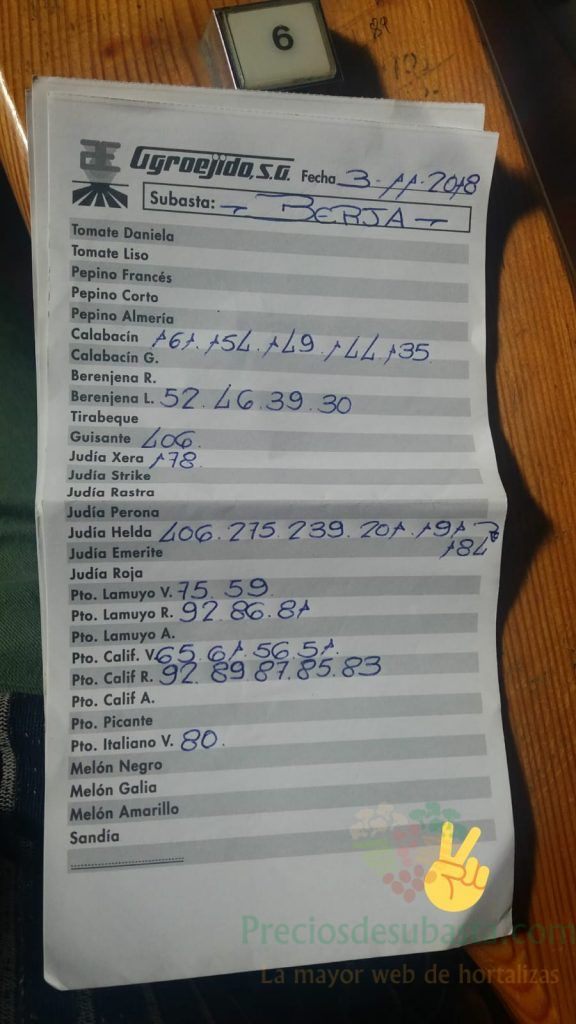 6
Agroejido, S.A. Fecha 3-11-2018
Subasta: - BERJA -
Tomate Daniela
Tomate Liso
Pepino Francés
Pepino Corto
Pepino Almería
Calabacín 161. 154. 149. 144. 135
Calabacín G.
Berenjena R.
Berenjena L. 52. 46. 39. 30
Tirabeque
Guisante 406.
Judía Xera 178.
Judía Strike
Judía Rastra
Judía Perona
Judía Helda 406. 275. 239. 201. 191
184
Judía Emerite
Judía Roja
Pto. Lamuyo V. 75. 59.
Pto. Lamuyo R. 92. 86. 81
Pto. Lamuyo A.
Pto. Calif. V. 65. 61. 56. 51.
Pto. Calif R. 92. 89. 87. 85. 83
Pto. Calif A.
Pto. Picante
Pto. Italiano V. 80.
Melón Negro
Melón Galia
Melón Amarillo
Sandía
Preciosdesubasta.com
La mayor web de hortalizas